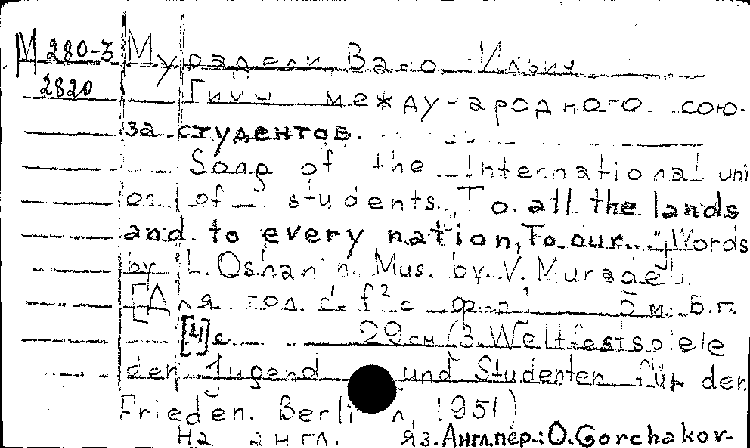 М 280-3 Мурадели, Вано Ильич
2820 Гимн международного сою-
за студентов.
Song of the International uni
on of students. "To all the lands
and to every nation, To our.." Words
by L. Oshanin. Mus. by V. Muradeli.
[Для гол. d-f² с ф-п.] Б.м. Б.г.
[4]с. 29см (3. Weltfestspiele
der Jugend und Studenten für den
Frieden. Berlin 1951)
На англ. яз. Англ.пер.: O. Gorchakov.